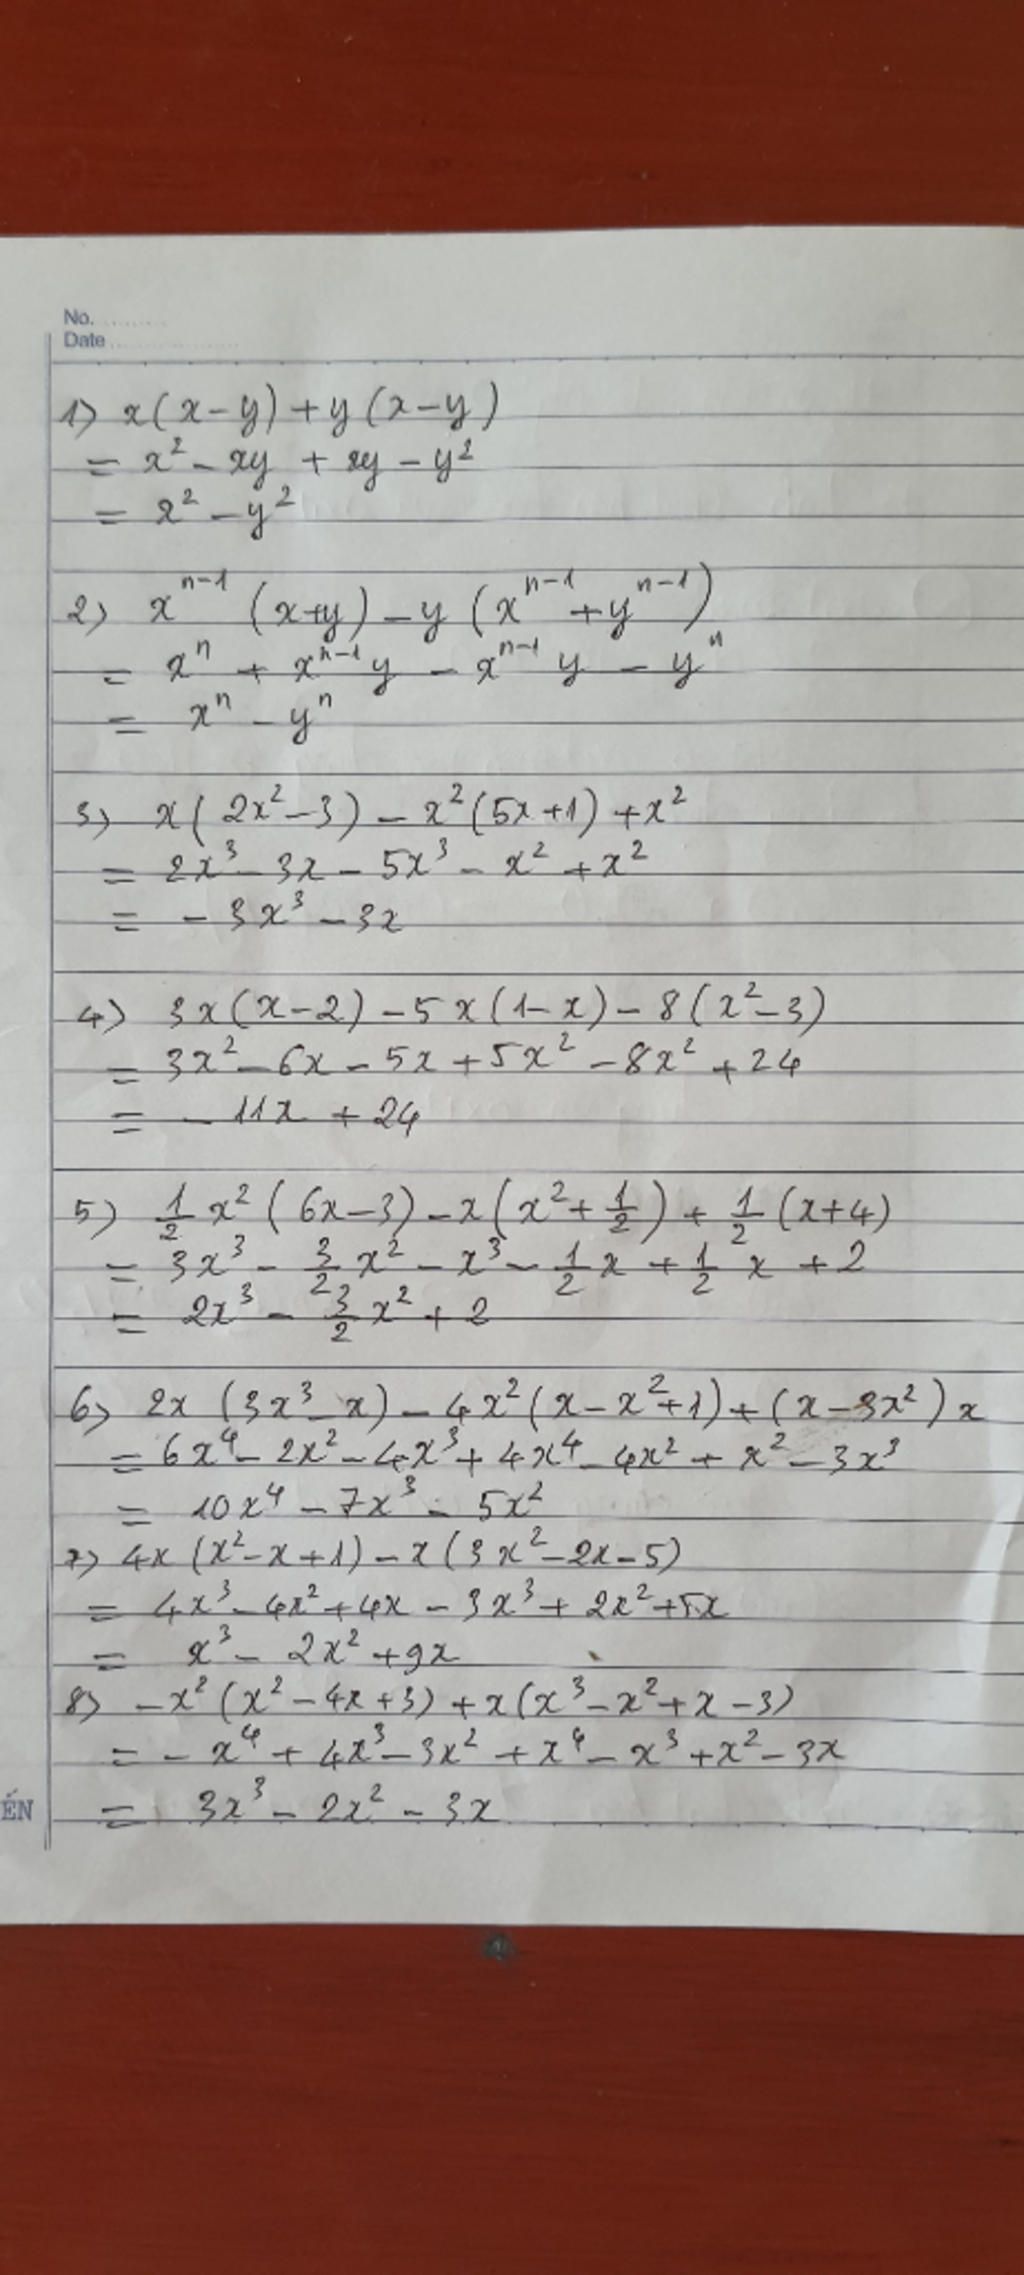 No. ..........
Date ....................
1) x(x-y)+y(x-y)
= x² - xy + xy - y²
= x² - y²
2) xⁿ⁻¹ (x+y) - y (xⁿ⁻¹ + yⁿ⁻¹)
= xⁿ + xⁿ⁻¹y - xⁿ⁻¹y - yⁿ
= xⁿ - yⁿ
3) x(2x²-3) - x²(5x+1) + x²
= 2x³ - 3x - 5x³ - x² + x²
= - 3x³ - 3x
4) 3x(x-2) - 5x(1-x) - 8(x²-3)
= 3x² - 6x - 5x + 5x² - 8x² + 24
= - 11x + 24
5) 1/2 x² (6x-3) - x(x² + 1/2) + 1/2 (x+4)
= 3x³ - 3/2 x² - x³ - 1/2 x + 1/2 x + 2
= 2x³ - 3/2 x² + 2
6) 2x (3x³ - x) - 4x² (x - x² + 1) + (x - 3x²) x
= 6x⁴ - 2x² - 4x³ + 4x⁴ - 4x² + x² - 3x³
= 10x⁴ - 7x³ - 5x²
7) 4x (x² - x + 1) - x (3x² - 2x - 5)
= 4x³ - 4x² + 4x - 3x³ + 2x² + 5x
= x³ - 2x² + 9x
8) - x² (x² - 4x + 3) + x (x³ - x² + x - 3)
= - x⁴ + 4x³ - 3x² + x⁴ - x³ + x² - 3x
= 3x³ - 2x² - 3x
ÉN